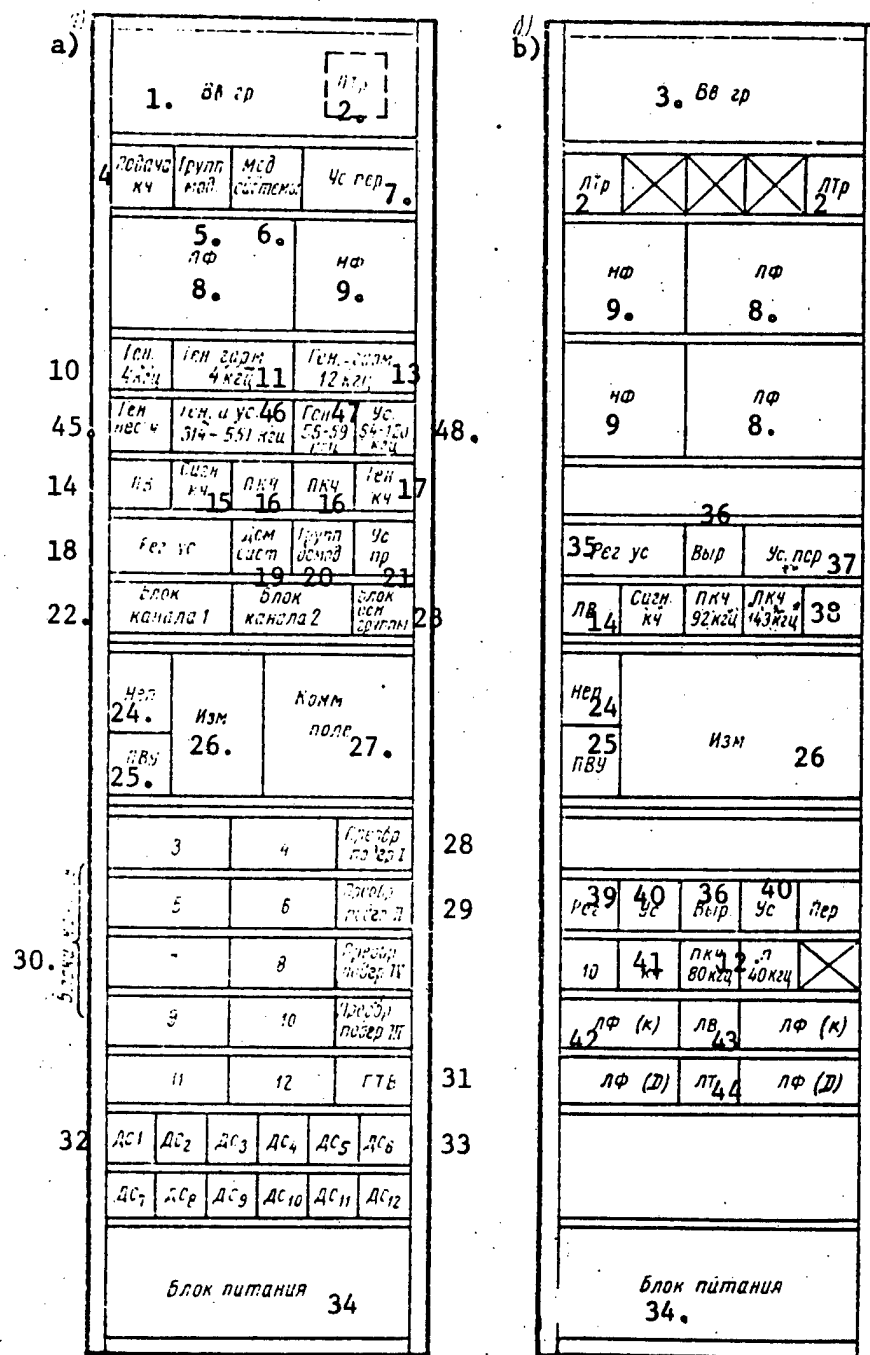 a)
1. Вв гр
ЛТр
2.
4
Подача кч
Групп мод.
Мод системы
Ус пер 7.
5. 6.
ПФ
8.
НФ
9.
10
Ген. 4 кгц
Ген гарм 4 кгц 11
Ген. гарм 12 кгц 13
45.
Ген нес ч
Ген. и ус. 46
314-551 кгц
Ген 47
Ус. 54-120 кгц
48.
14
ЛВ
Сигн кч 15
ПКЧ 16
ПКЧ 16
Ген кч 17
18
Рег ус
Дем сист 19
Групп демод 20
Ус пр 21
22.
Блок канала 1
Блок канала 2
Блок осн группы
23
Неп
24.
ПВУ
25.
Изм
26.
Комм поле
27.
3
4
Преобр подгр I
28
5
6
Преобр подгр II
29
30.
7
8
Преобр подгр IV
9
10
Преобр подгр III
11
12
ГТВ
31
32
ДС1 ДС2 ДС3 ДС4 ДС5 ДС6
33
ДС7 ДС8 ДС9 ДС10 ДС11 ДС12
Блок питания
34
b)
3. Вв гр
ЛТр
2
ЛТр
2
НФ
9.
ПФ
8.
НФ
9
ПФ
8.
36
35 Рег ус
Выр
Ус. пер 37
ЛВ
14
Сигн. кч
ПКЧ 92 кгц
ПКЧ 143 кгц
38
Неп
24
25
ПВУ
Изм
26
39 Рег
40 Ус
36 Выр
40 Ус
Пер
10
41
ПКЧ 80 кгц
12.
40 кгц
42 ЛФ (К)
ЛВ 43
ЛФ (К)
ЛФ (D)
ЛТ 44
ЛФ (D)
Блок питания
34.